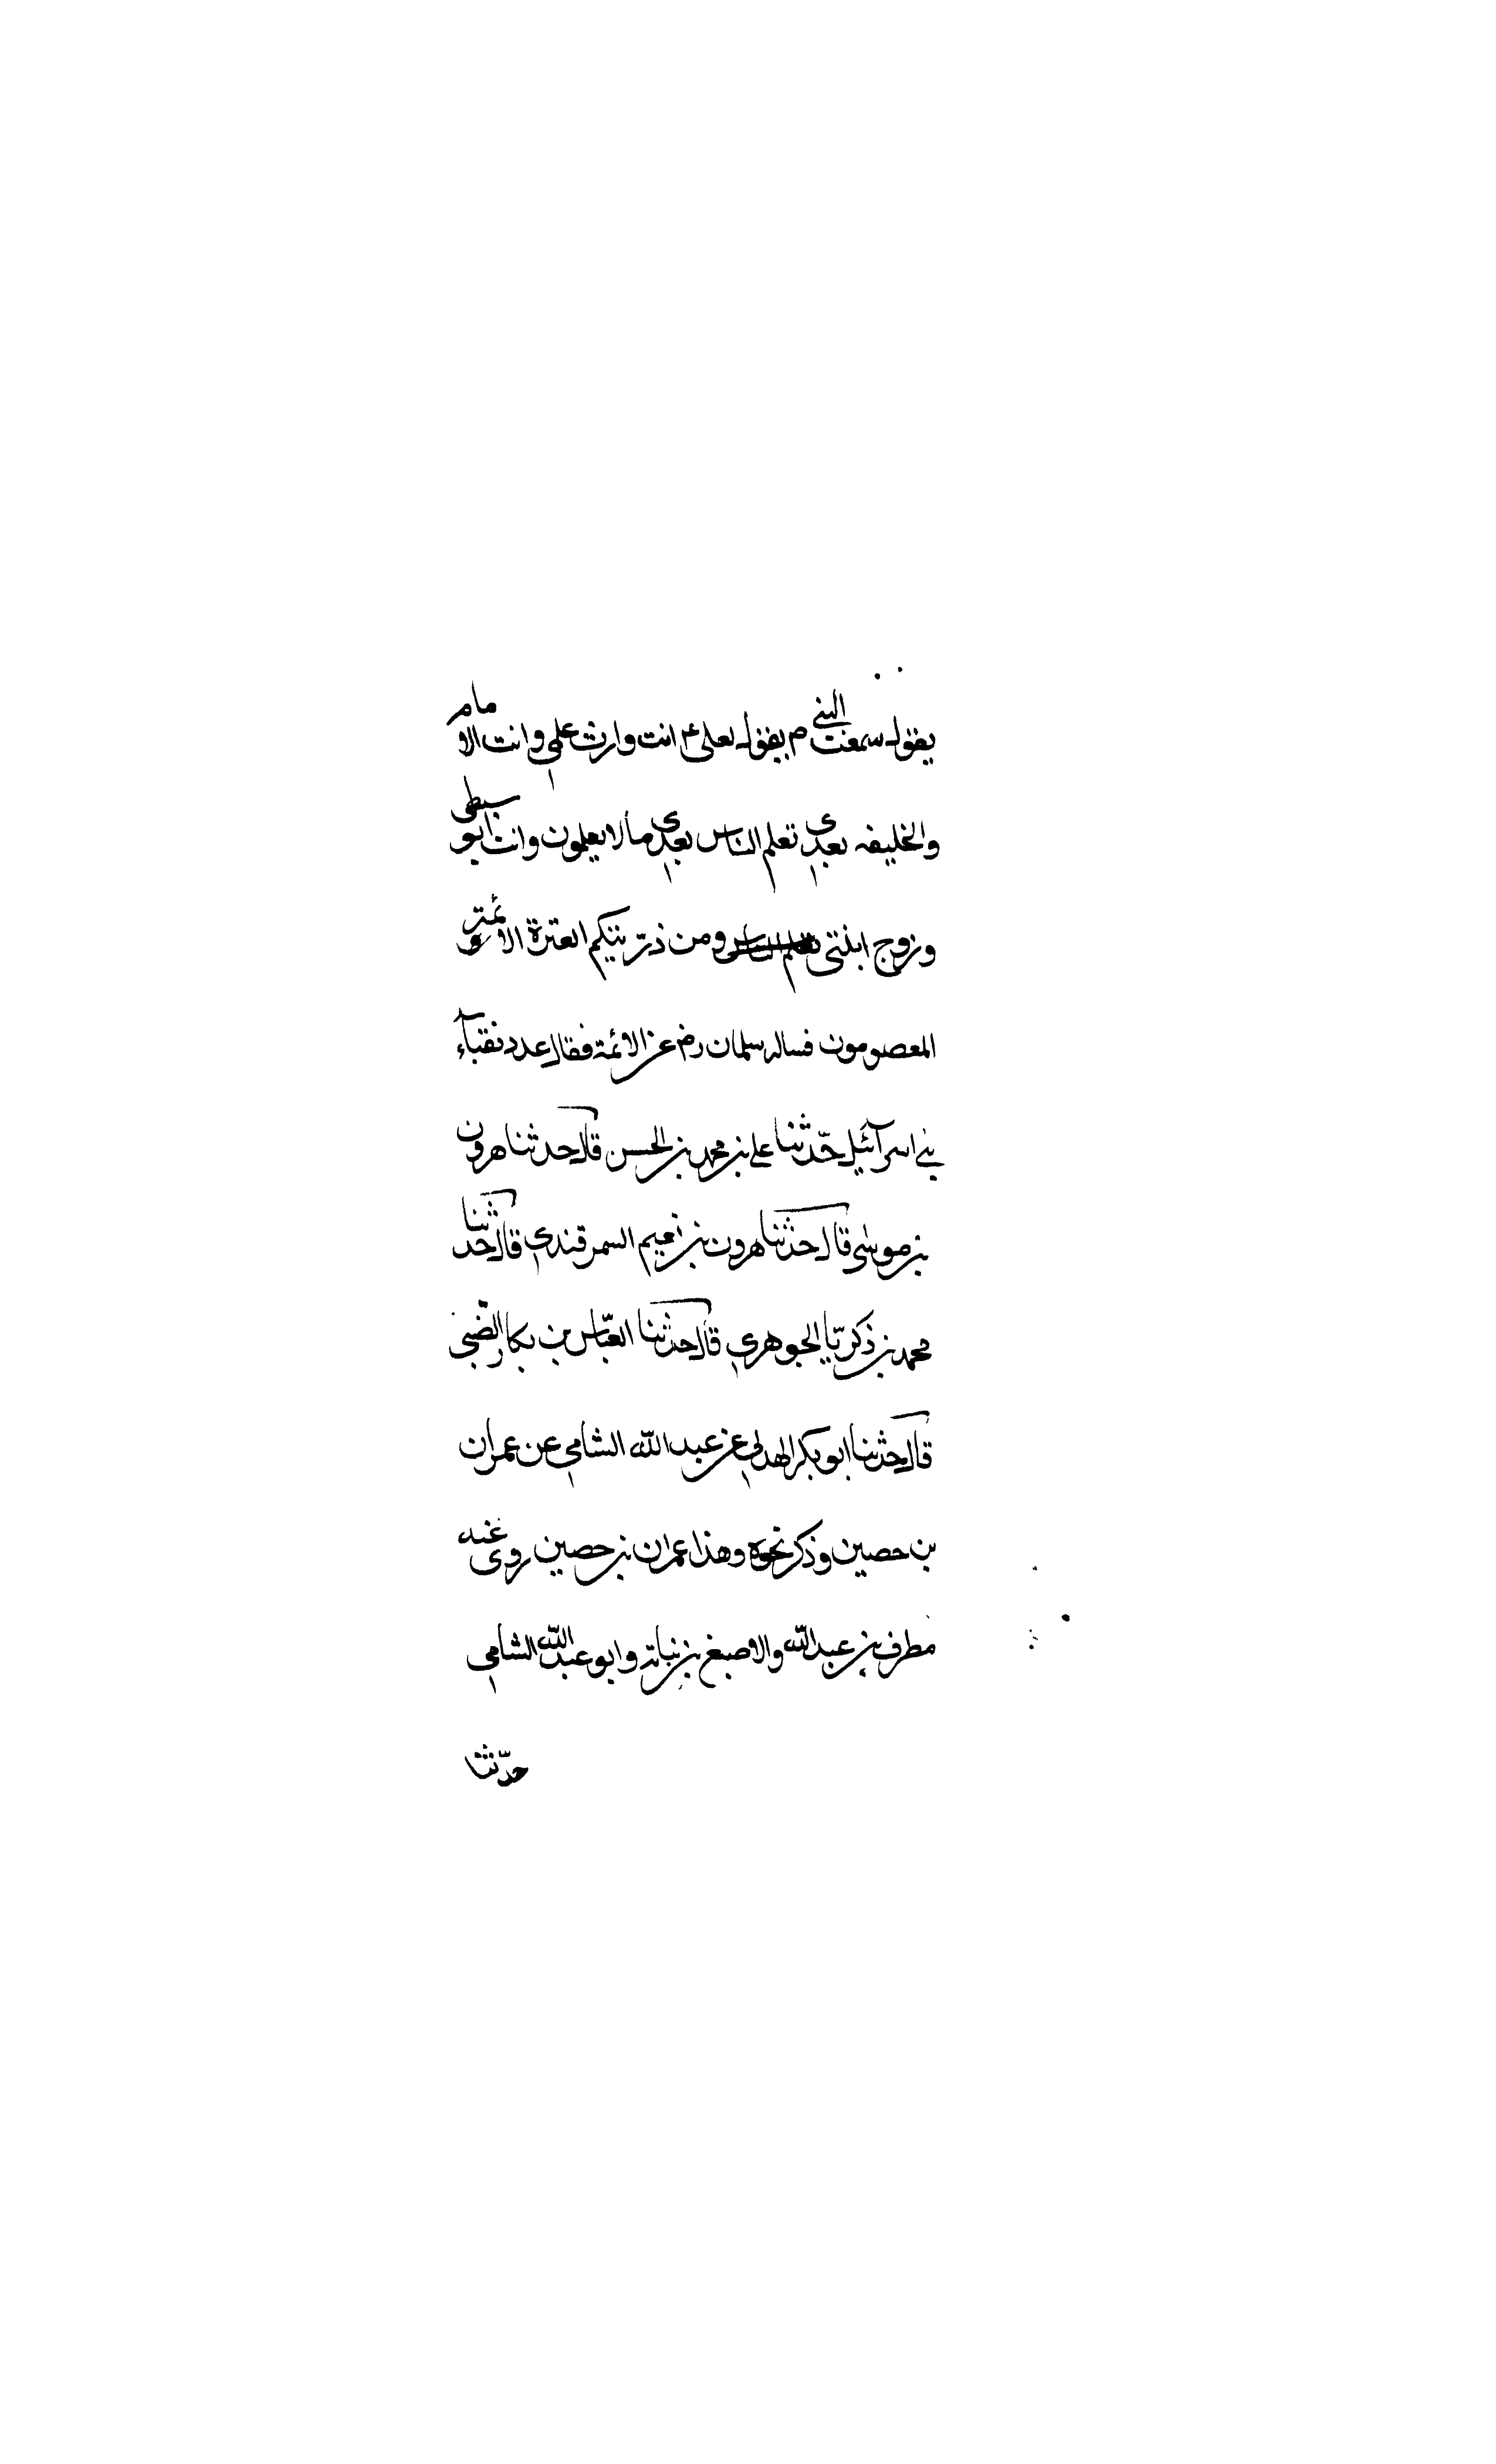 يقول سمعت النبي ص يقول لعلي ع انت وارث علمي وانت الامام
والخليفه بعدي تعلم الناس بعدي مالا يعلمون وانت ابو سبطي
وزوج ابنتي ومن ذريتكم العترة الائمة
المعصومون فساله سلمان رض عن الائمة فقال عدد نقبآء
بني اسرآئيل حدّثنا علي بن محمد بن الحسن قال حدثنا هرون
بن موسى قال حدثنا هرون بن نعيم السمرقندي قال حدثنا
محمد بن ذكريّا الجوهري قال حدثنا العبّاس بن بكار الضّبي
قال حدثنا ابو بكر الهدلي عن عبد الله الشامي عن عمران
بن حصين وذكر نحوه وهذا عمران بن حصين روى عنه
مطرف بن عبد الله والاصبغ بن نباته وابو عبد الله الشامي
حدّثنا